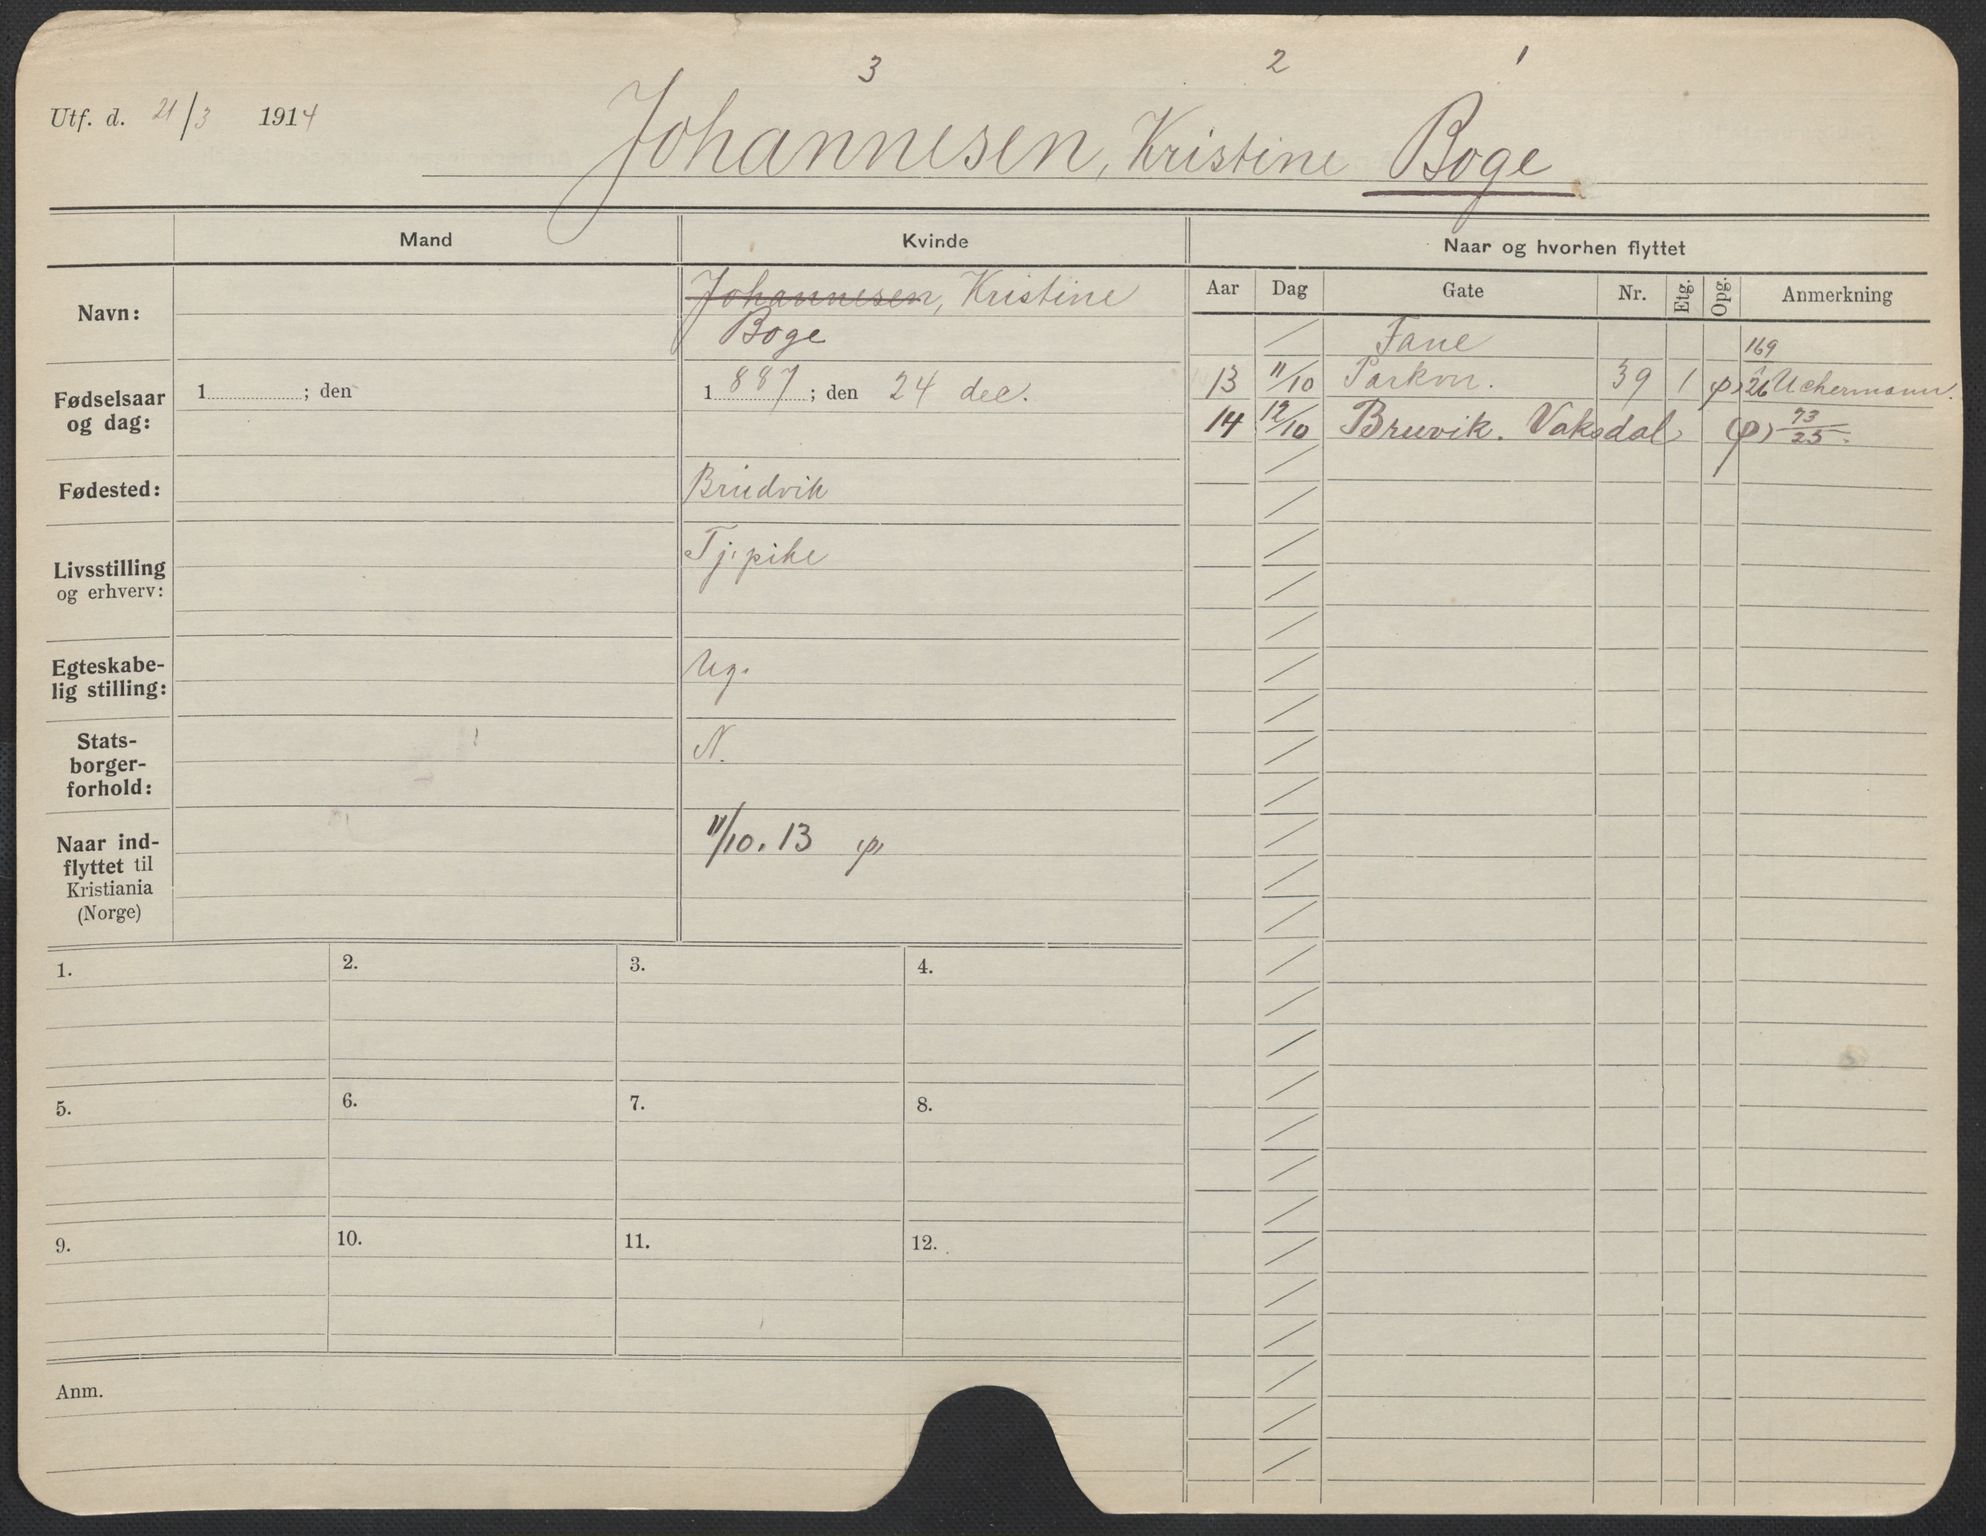 3 2 1
Utf. d. 21/3 1914
Johannesen, Kristine Boge
Mand Kvinde Naar og hvorhen flyttet
Aar Dag Gate Nr. Etg. Opg. Anmerkning
Navn: Johannesen, Kristine
Boge
Fødselsaar og dag: 1 ; den 1887 ; den 24 dec.
Fødested: Brudvik
Livsstilling og erhverv: Tj. pike
Egteskabe-
lig stilling: Ug.
Stats-
borger-
forhold: N.
Naar ind-
flyttet til
Kristiania
(Norge) 11/10. 13 φ
Fane 169
13 11/10 Parkvn. 39 1 φ) 26 Uchermann.
14 12/10 Bruvik. Vaksdal (φ) 73/25.
1. 2. 3. 4.
5. 6. 7. 8.
9. 10. 11. 12.
Anm.